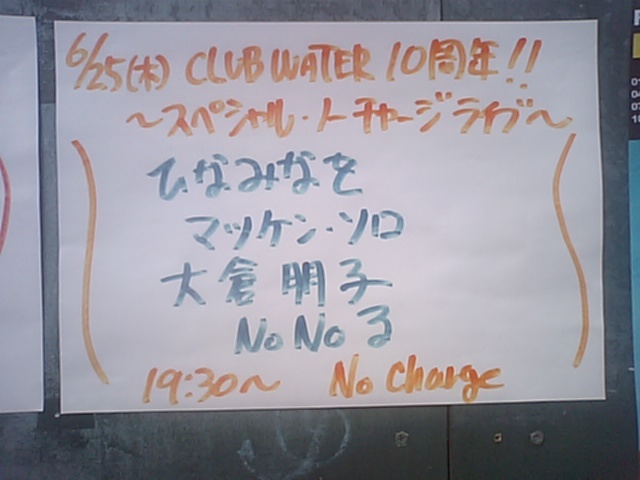 6/25(木) CLUB WATER 10周年!!
~スペシャル・ノーチャージライブ~
ひなみなを
マツケン・ソロ
大倉明子
NoNoる
19:30~ No Charge